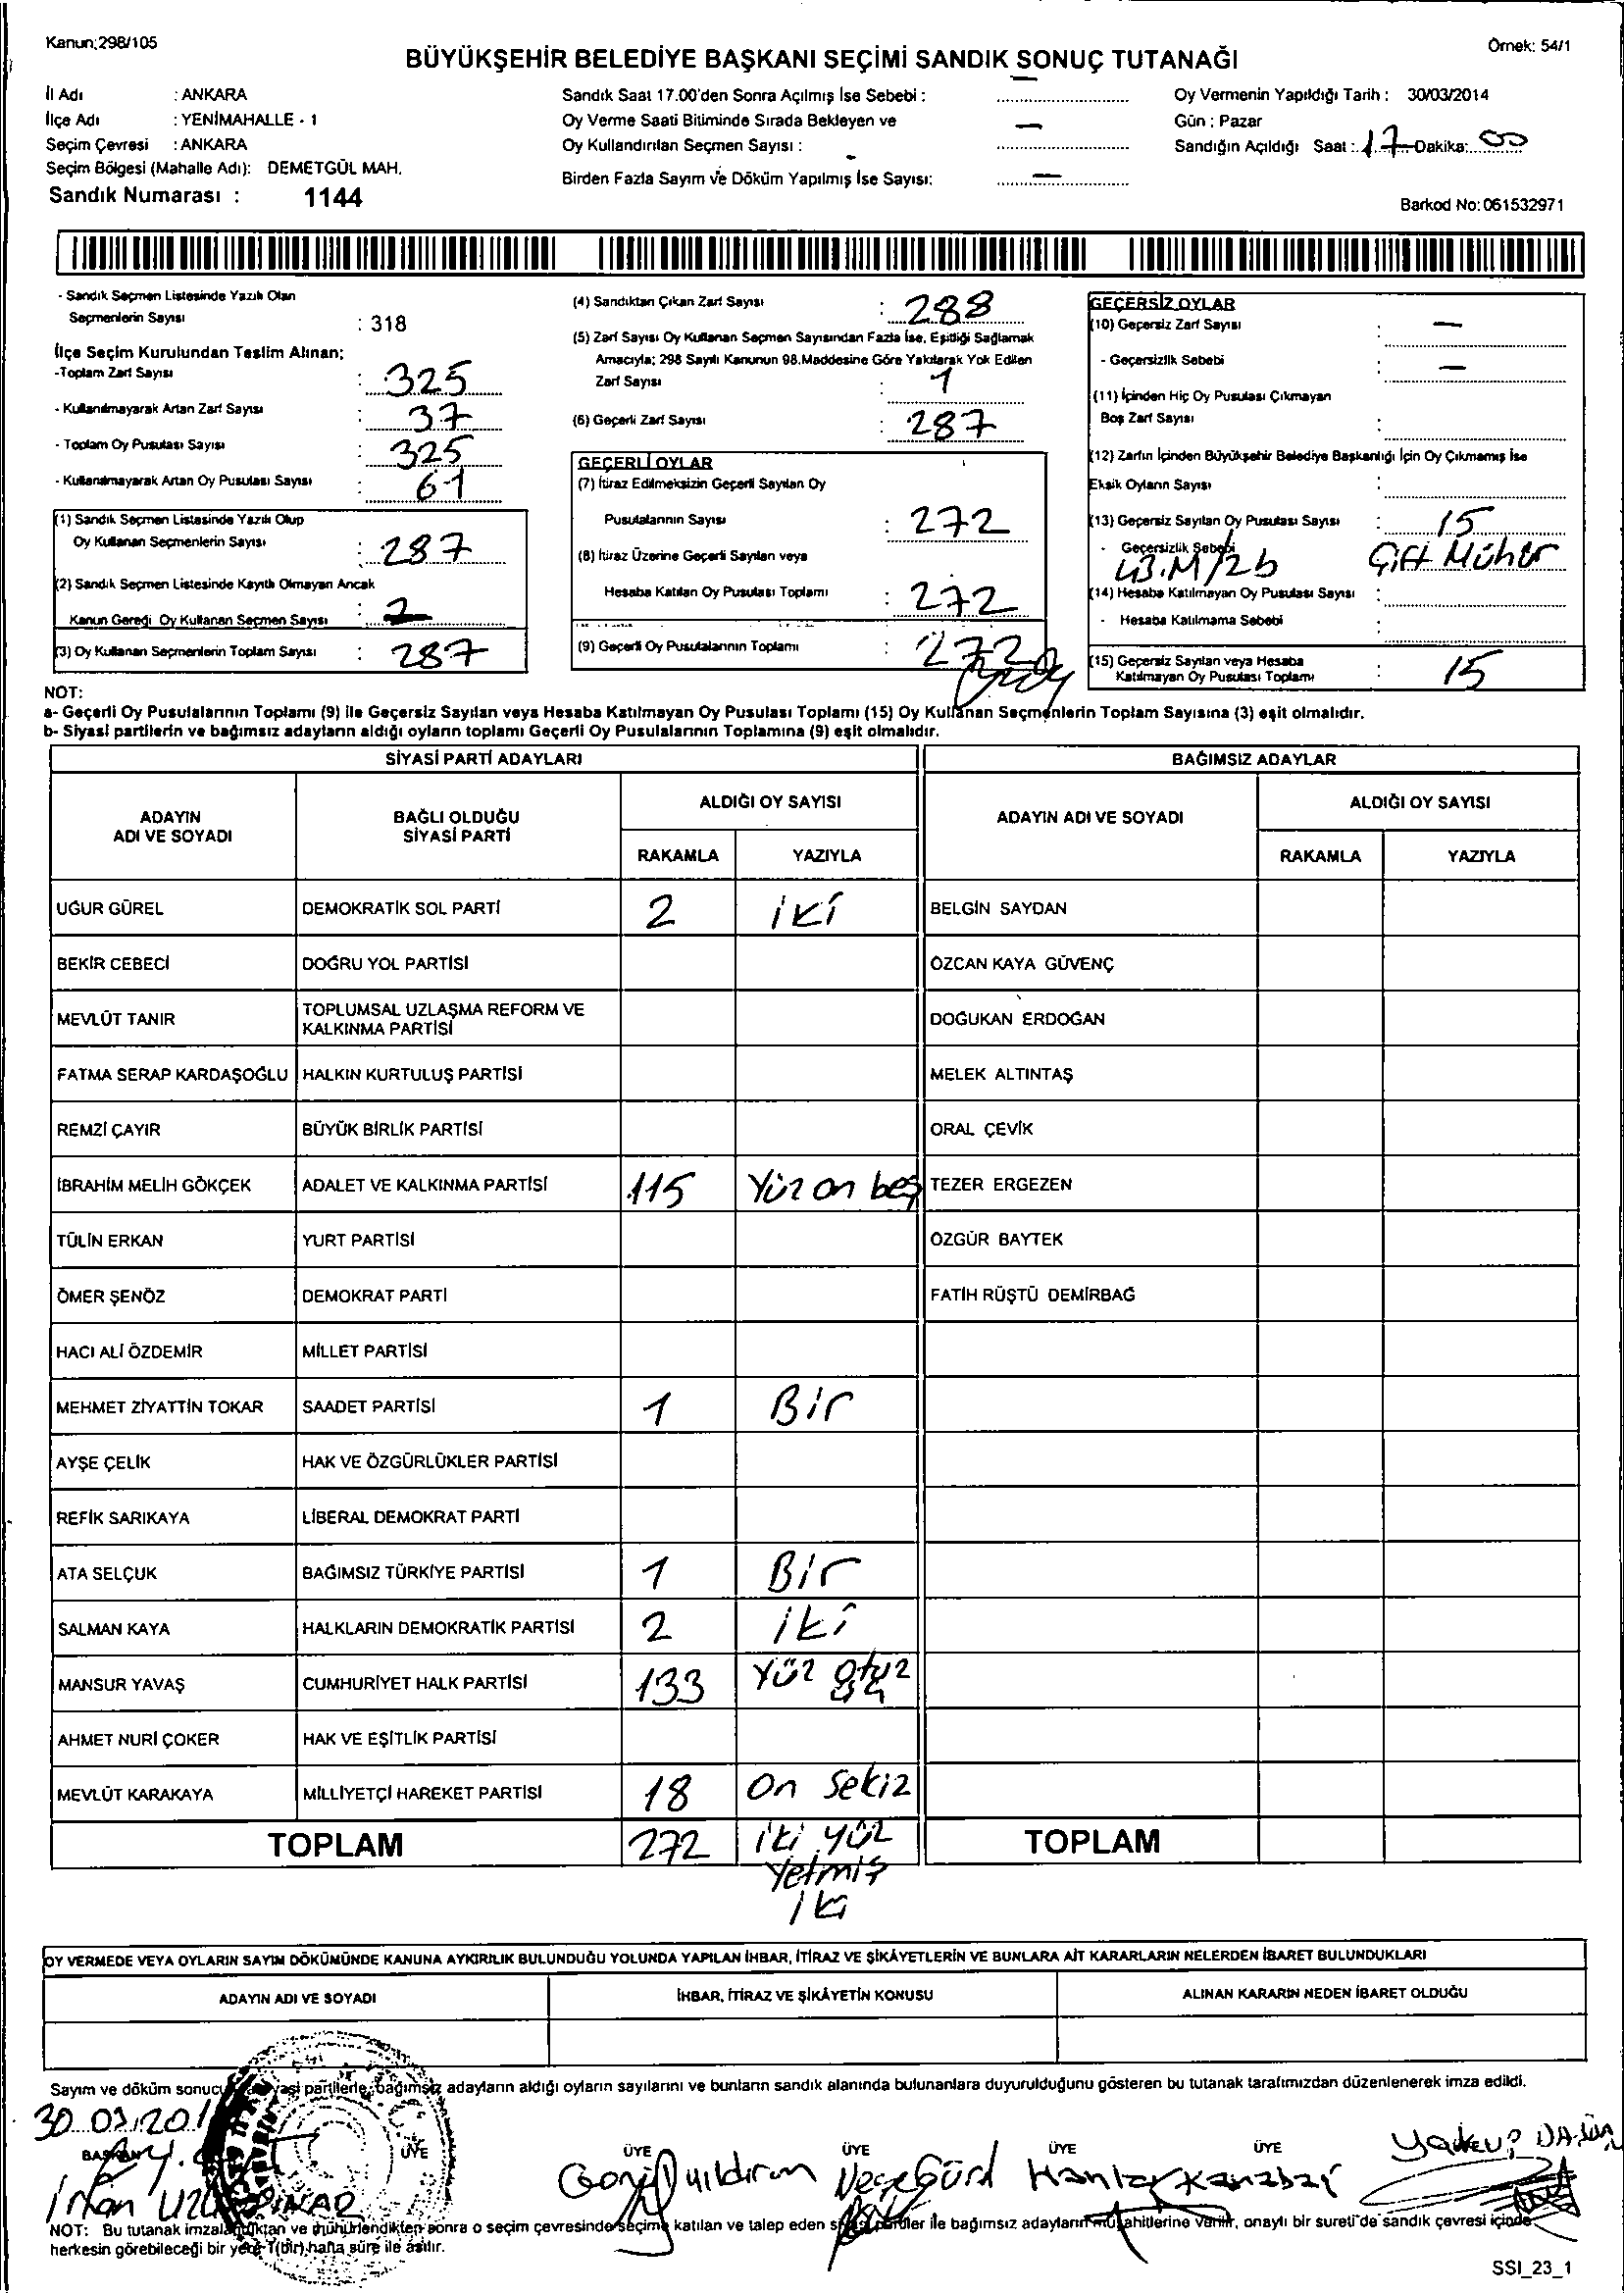 Kanun:298/105
Örnek: 54/1
BÜYÜKŞEHİR BELEDİYE BAŞKANI SEÇİMİ SANDIK SONUÇ TUTANAĞI
İl Adı : ANKARA
İlçe Adı : YENİMAHALLE - 1
Seçim Çevresi : ANKARA
Seçim Bölgesi (Mahalle Adı): DEMETGÜL MAH.
Sandık Numarası : 1144
Sandık Saat 17.00'den Sonra Açılmış İse Sebebi : —
Oy Verme Saati Bitiminde Sırada Bekleyen ve
Oy Kullandırılan Seçmen Sayısı : —
Birden Fazla Sayım ve Döküm Yapılmış İse Sayısı: —
Oy Vermenin Yapıldığı Tarih : 30/03/2014
Gün : Pazar
Sandığın Açıldığı Saat : 17 Dakika: 00
Barkod No: 061532971
- Sandık Seçmen Listesinde Yazılı Olan
Seçmenlerin Sayısı : 318
İlçe Seçim Kurulundan Teslim Alınan:
-Toplam Zarf Sayısı : 325
- Kullanılmayarak Artan Zarf Sayısı : 37
- Toplam Oy Pusulası Sayısı : 325
- Kullanılmayarak Artan Oy Pusulası Sayısı : 61
(1) Sandık Seçmen Listesinde Yazılı Olup
Oy Kullanan Seçmenlerin Sayısı : 287
(2) Sandık Seçmen Listesinde Kayıtlı Olmayan Ancak
Kanun Gereği Oy Kullanan Seçmen Sayısı :
(3) Oy Kullanan Seçmenlerin Toplam Sayısı : 287
(4) Sandıktan Çıkan Zarf Sayısı : 288
(5) Zarf Sayısı Oy Kullanan Seçmen Sayısından Fazla İse, Eşitliği Sağlamak
Amacıyla; 298 Sayılı Kanunun 98.Maddesine Göre Yakılarak Yok Edilen
Zarf Sayısı : 1
(6) Geçerli Zarf Sayısı : 287
GEÇERLİ OYLAR
(7) İtiraz Edilmeksizin Geçerli Sayılan Oy
Pusulalarının Sayısı : 272
(8) İtiraz Üzerine Geçerli Sayılan veya
Hesaba Katılan Oy Pusulası Toplamı : 272
(9) Geçerli Oy Pusulalarının Toplamı : 272
GEÇERSİZ OYLAR
(10) Geçersiz Zarf Sayısı : —
- Geçersizlik Sebebi : —
(11) İçinden Hiç Oy Pusulası Çıkmayan
Boş Zarf Sayısı :
(12) Zarfın İçinden Büyükşehir Belediye Başkanlığı İçin Oy Çıkmamış İse
Eksik Oyların Sayısı :
(13) Geçersiz Sayılan Oy Pusulası Sayısı : 15
- Geçersizlik Sebebi : Çift Mühür
43.M/2b
(14) Hesaba Katılmayan Oy Pusulası Sayısı :
- Hesaba Katılmama Sebebi :
(15) Geçersiz Sayılan veya Hesaba
Katılmayan Oy Pusulası Toplamı : 15
NOT:
a- Geçerli Oy Pusulalarının Toplamı (9) ile Geçersiz Sayılan veya Hesaba Katılmayan Oy Pusulası Toplamı (15) Oy Kullanan Seçmenlerin Toplam Sayısına (3) eşit olmalıdır.
b- Siyasi partilerin ve bağımsız adayların aldığı oyların toplamı Geçerli Oy Pusulalarının Toplamına (9) eşit olmalıdır.
SİYASİ PARTİ ADAYLARI BAĞIMSIZ ADAYLAR
ADAYIN ADI VE SOYADI BAĞLI OLDUĞU SİYASİ PARTİ ALDIĞI OY SAYISI ADAYIN ADI VE SOYADI ALDIĞI OY SAYISI
RAKAMLA YAZIYLA RAKAMLA YAZIYLA
UĞUR GÜREL DEMOKRATİK SOL PARTİ 2 iki BELGİN SAYDAN
BEKİR CEBECİ DOĞRU YOL PARTİSİ ÖZCAN KAYA GÜVENÇ
MEVLÜT TANIR TOPLUMSAL UZLAŞMA REFORM VE KALKINMA PARTİSİ DOĞUKAN ERDOĞAN
FATMA SERAP KARDAŞOĞLU HALKIN KURTULUŞ PARTİSİ MELEK ALTINTAŞ
REMZİ ÇAYIR BÜYÜK BİRLİK PARTİSİ ORAL ÇEVİK
İBRAHİM MELİH GÖKÇEK ADALET VE KALKINMA PARTİSİ 115 Yüz on beş TEZER ERGEZEN
TÜLİN ERKAN YURT PARTİSİ ÖZGÜR BAYTEK
ÖMER ŞENÖZ DEMOKRAT PARTİ FATİH RÜŞTÜ DEMİRBAĞ
HACI ALİ ÖZDEMİR MİLLET PARTİSİ
MEHMET ZİYATTİN TOKAR SAADET PARTİSİ 1 Bir
AYŞE ÇELİK HAK VE ÖZGÜRLÜKLER PARTİSİ
REFİK SARIKAYA LİBERAL DEMOKRAT PARTİ
ATA SELÇUK BAĞIMSIZ TÜRKİYE PARTİSİ 1 Bir
SALMAN KAYA HALKLARIN DEMOKRATİK PARTİSİ 2 iki
MANSUR YAVAŞ CUMHURİYET HALK PARTİSİ 133 Yüz otuz üç
AHMET NURİ ÇOKER HAK VE EŞİTLİK PARTİSİ
MEVLÜT KARAKAYA MİLLİYETÇİ HAREKET PARTİSİ 18 On Sekiz
TOPLAM 272 iki yüz TOPLAM
Yetmiş
iki
OY VERMEDE VEYA OYLARIN SAYIM DÖKÜMÜNDE KANUNA AYKIRILIK BULUNDUĞU YOLUNDA YAPILAN İHBAR, İTİRAZ VE ŞİKÂYETLERİN VE BUNLARA AİT KARARLARIN NELERDEN İBARET BULUNDUKLARI
ADAYIN ADI VE SOYADI İHBAR, İTİRAZ VE ŞİKÂYETİN KONUSU ALINAN KARARIN NEDEN İBARET OLDUĞU
Sayım ve döküm sonucu partilerle, bağımsız adayların aldığı oyların sayılarını ve bunların sandık alanında bulunanlara duyurulduğunu gösteren bu tutanak tarafımızdan düzenlenerek imza edildi.
30.03.201
BAŞKAN ÜYE ÜYE ÜYE ÜYE ÜYE
Yıldırım Gürd
NOT: Bu tutanak imzalandıktan ve mühürlendikten sonra o seçim çevresinde seçime katılan ve talep eden siyasi partiler ile bağımsız adayların müşahitlerine verilir, onaylı bir sureti de sandık çevresi içinde
herkesin görebileceği bir yere 1(bir) hafta süre ile asılır.
SSI_23_1